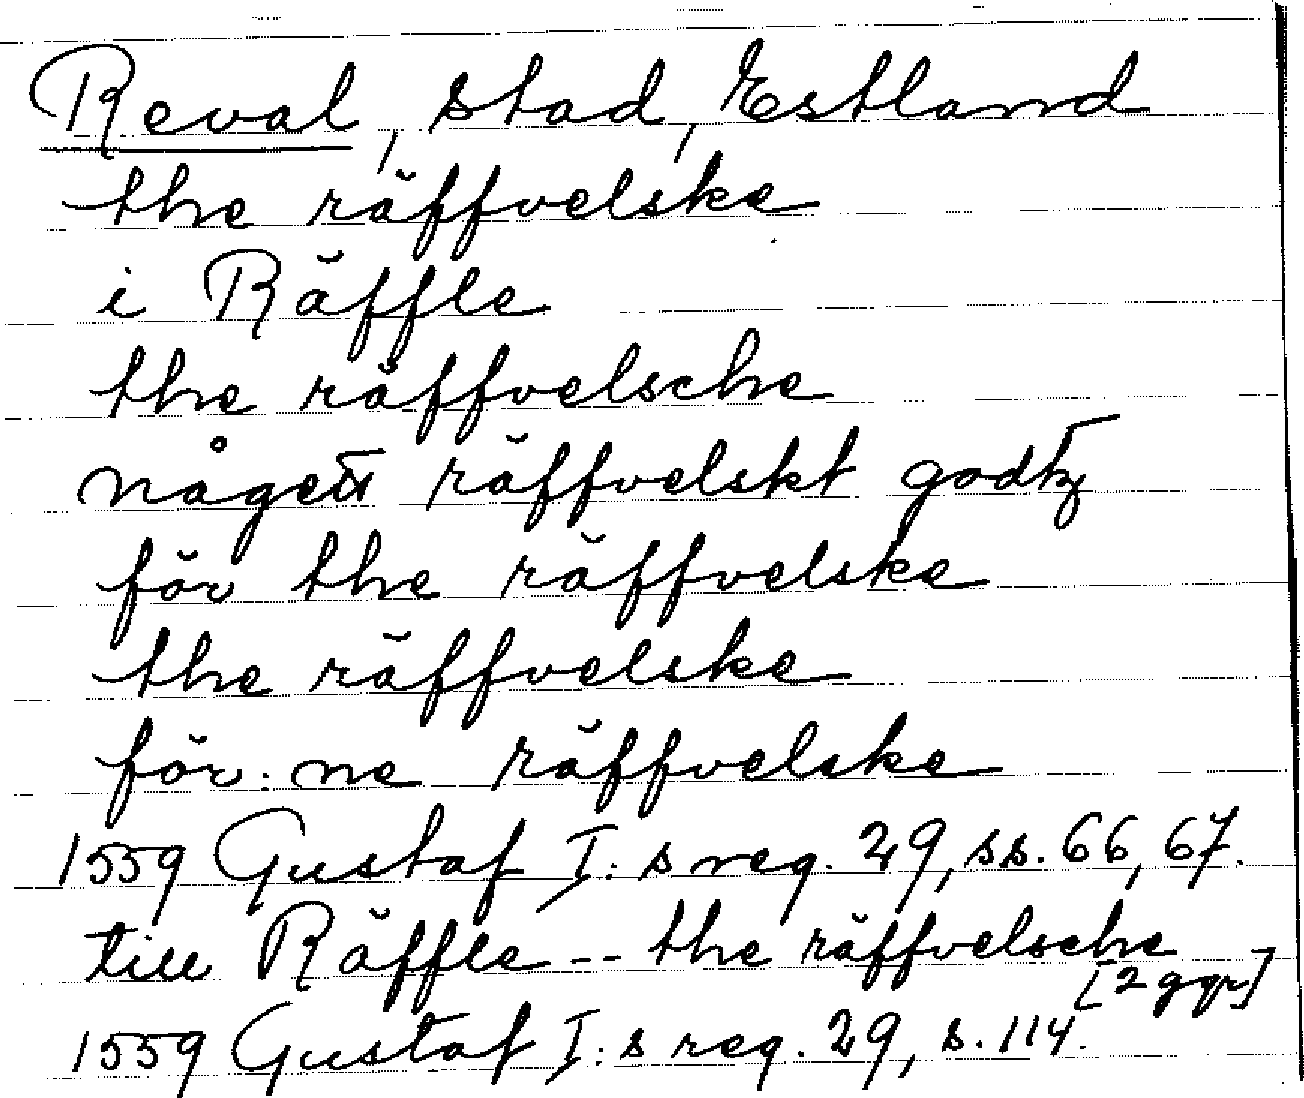 Reval, stad, Estland
the räffvelske
i Räffle
the räffvelsche
någett räffvelskt godtz
för the räffvelske
the räffvelske
för:ne räffvelske
1559 Gustaf I:s reg. 29, ss. 66, 67.
till Räffle -- the räffvelsche
[2 ggr]
1559 Gustaf I:s reg. 29, s. 114.